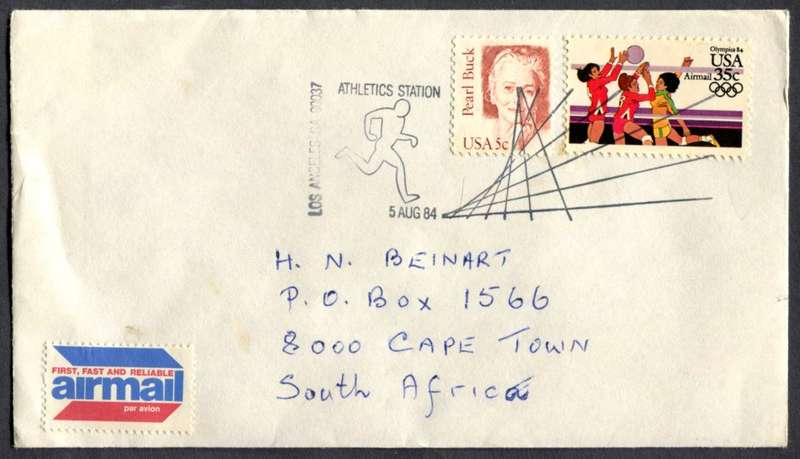 ATHLETICS STATION
LOS ANGELES, CA 90037
5 AUG 84
Pearl Buck
USA 5c
Olympics 84
USA
Airmail 35c
H. N. BEINART
P. O. BOX 1566
8000 CAPE TOWN
South Africa
FIRST, FAST AND RELIABLE
airmail
par avion